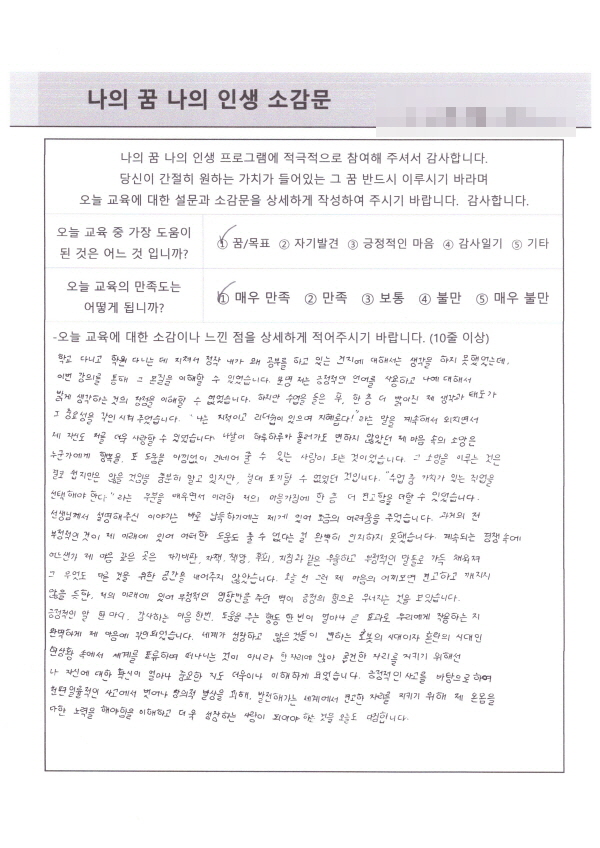 나의 꿈 나의 인생 소감문
나의 꿈 나의 인생 프로그램에 적극적으로 참여해 주셔서 감사합니다.
당신이 간절히 원하는 가치가 들어있는 그 꿈 반드시 이루시기 바라며
오늘 교육에 대한 설문과 소감문을 상세하게 작성하여 주시기 바랍니다. 감사합니다.
오늘 교육 중 가장 도움이
된 것은 어느 것 입니까?
① 꿈/목표 ② 자기발견 ③ 긍정적인 마음 ④ 감사일기 ⑤ 기타
오늘 교육의 만족도는
어떻게 됩니까?
① 매우 만족 ② 만족 ③ 보통 ④ 불만 ⑤ 매우 불만
-오늘 교육에 대한 소감이나 느낀 점을 상세하게 적어주시기 바랍니다. (10줄 이상)
학교 다니고 학원 다니는 데 지쳐서 정작 내가 왜 공부를 하고 있는 건지에 대해서는 생각을 하지 못했었는데,
이번 강의를 통해 그 본질을 이해할 수 있었습니다. 분명 저는 긍정적인 언어를 사용하고 나에 대해서
밝게 생각하는 것의 장점을 이해할 수 없었습니다. 하지만 수업을 들은 후, 한 층 더 밝아진 제 생각과 태도가
그 중요성을 각인 시켜 주었습니다. "나는 지적이고 리더쉽이 있으며 지혜롭다!"라는 말을 계속해서 외치면서
제 자신도 저를 더욱 사랑할 수 있었습니다. 나날이 하루하루가 흘러가도 변하지 않았던 제 마음 속의 소망은
누군가에게 행복을, 또 도움을 아낌없이 건네어 줄 수 있는 사람이 되는 것이었습니다. 그 소망을 이루는 것은
결코 쉽지만은 않을 것임을 충분히 알고 있지만, 절대 포기할 수 없었던 것입니다. "수업 중 가치가 있는 직업을
선택해야 한다."라는 부분을 배우면서 이러한 저의 마음가짐에 한 층 더 견고함을 더할 수 있었습니다.
선생님께서 설명해주신 이야기는 바로 납득하기에는 제게 있어 조금의 어려움을 주었습니다. 과거의 전
부정적인 것이 제 미래에 있어 어떠한 도움도 줄 수 없다는 걸 완벽히 인지하지 못했습니다. 계속되는 경쟁 속에
어느샌가 제 마음 같은 곳은 자기비판, 자책, 책망, 후회, 지침과 같은 우울하고 부정적인 말들로 가득 채워져
그 무엇도 다른 것을 위한 공간을 내어주지 않았습니다. 오늘 전 그런 제 마음의 어쩌보면 견고하고 깨지지
않을 듯한, 저의 미래에 있어 부정적인 영향만을 주던 벽이 긍정의 힘으로 무너지는 것을 보았습니다.
긍정적인 말 한 마디, 감사하는 마음 한번, 도움을 주는 행동 한 번이 얼마나 큰 효과로 우리에게 작용하는 지
완벽하게 제 마음에 각인되었습니다. 세계가 성장하고 많은 것들이 변하는 로봇의 시대이자 혼란의 시대인
현상황 속에서 세계를 표류하며 떠나니는 것이 아니라 한자리에 앉아 굳건한 자리를 지키기 위해선
나 자신에 대한 확신이 얼마나 중요한 지도 더욱이나 이해하게 되었습니다. 긍정적인 사고를 바탕으로 하여
천편일률적인 사고에서 벗어나 창의적 발상을 꾀해, 발전해가는 세계에서 견고한 자리를 지키기 위해 제 온몸을
다한 노력을 해야함을 이해하고 더욱 성장하는 사람이 되어야 하는 것을 오늘도 다짐합니다.